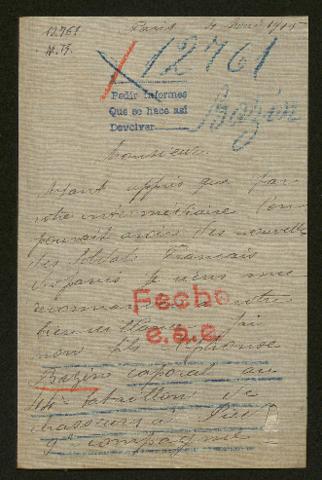 12761
Paris 4 1915
12761
Pedir informes
Que se hace así
Devolver
Bazin
Monsieur
Ayant appris que par
votre intermédiaire l'on
pourrait avoir des nouvelles
des soldats Français
disparus je viens me
recommander à votre
bienveillance. J'ai
mon fils Alphonse
Fecho
e.a.e.
Bazin caporal au
44e bataillon de
chasseurs à pied
9e compagnie